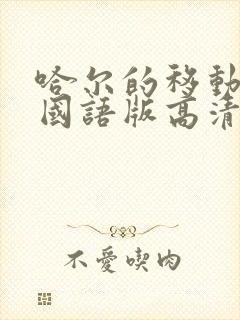 哈尔的移動
國語版高清
不愛喫肉